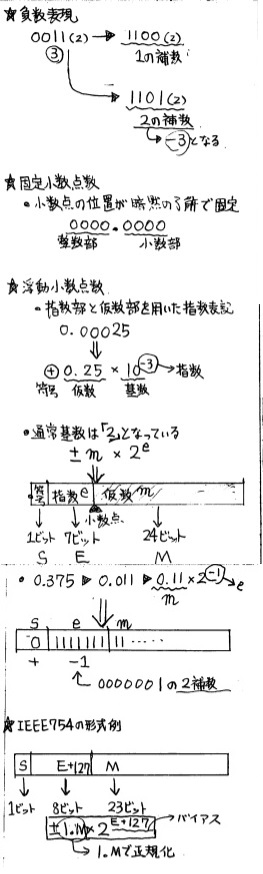 ☆負数表現
0011(2) → 1100(2)
③ 1の補数
1101(2)
2の補数
→ -3となる
☆固定小数点数
・小数点の位置が暗黙の了解で固定
0000.0000
整数部 小数部
☆浮動小数点数
・指数部と仮数部を用いた指数表記
0.00025
⊕ 0.25 × 10^-3 → 指数
符号 仮数 基数
・通常基数は「2」となっている
± m × 2^e
符号 指数e 仮数m
小数点
1ビット 7ビット 24ビット
S E M
・0.375 ▶ 0.011 ▶ 0.11 × 2^-1 → e
m
S e m
0 1111111 11 .....
+ -1
0000001の2補数
☆IEEE754の形式例
S E+127 M
1ビット 8ビット 23ビット
±1.M × 2^E+127 バイアス
1.Mで正規化